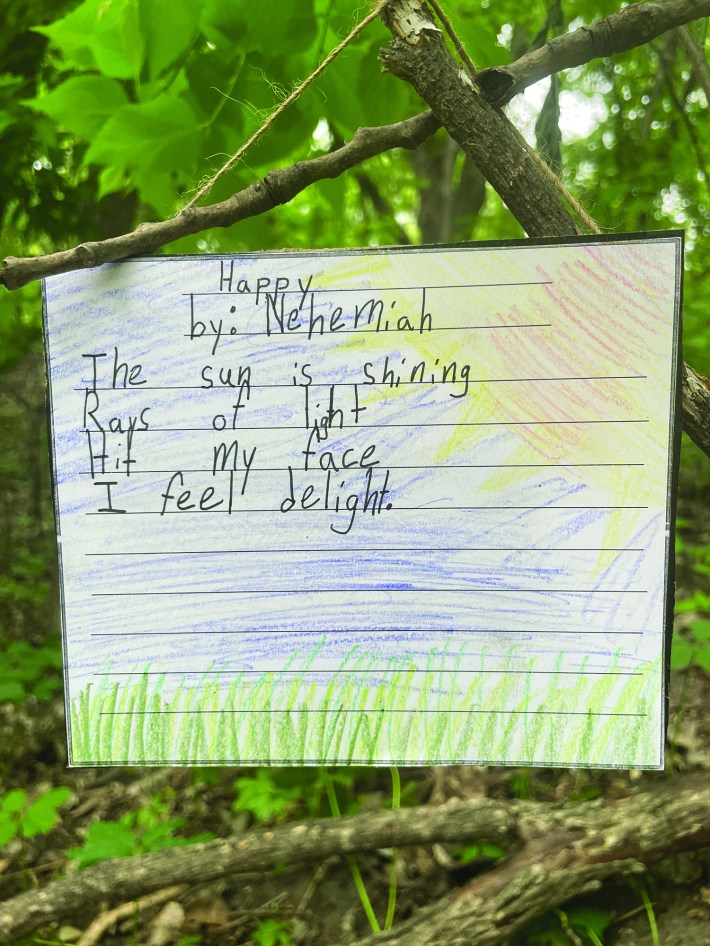 Happy
by: Nehemiah
The sun is shining
Rays of light
Hit my face
I feel delight.